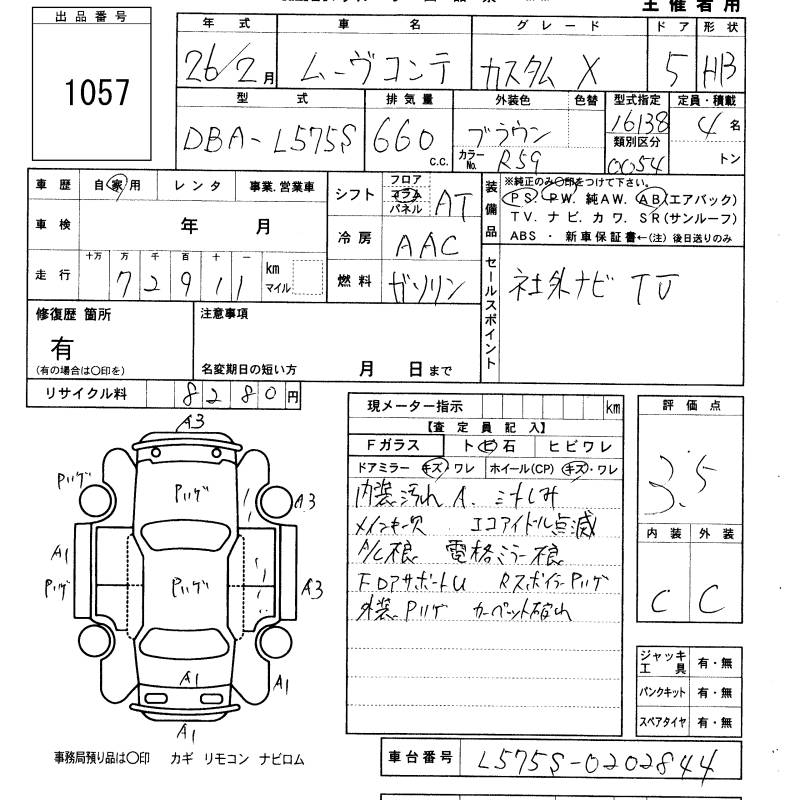 主催者用
出品番号
1057
年式 車名 グレード ドア 形状
26/2月 ムーヴコンテ カスタム X 5 HB
型式 排気量 外装色 色替 型式指定 定員・積載
DBA-L575S 660 c.c. ブラウン 16138 4名
カラーNo. R59 類別区分 0054 トン
車歴 自家用 レンタ 事業.営業車
車検 年 月
走行 十万 万 千 百 十 一 km マイル
7 2 9 1 1
シフト フロア コラム パネル AT
冷房 AAC
燃料 ガソリン
装備品
※純正のみ〇印をつけて下さい。
PS. PW. 純AW. AB(エアバック)
TV. ナビ. カワ. SR(サンルーフ)
ABS ・ 新車保証書←(注) 後日送りのみ
セールスポイント
社外ナビ TV
修復歴 箇所
有
(有の場合は〇印を)
注意事項
名変期日の短い方 月 日まで
リサイクル料 8280円
現メーター指示 km
【査定員記入】
Fガラス ト ビ 石 ヒビワレ
ドアミラー キズ・ワレ ホイール(CP) キズ・ワレ
内装汚れ A. ミホしみ
メインキー欠 エコアイドル点滅
A/C根 電格ミラー根
FDアサポートU RスポイラーPハゲ
外装Pハゲ カーペット破れ
評価点
3.5
内装 外装
C C
ジャッキ工具 有・無
パンクキット 有・無
スペアタイヤ 有・無
A3
Pハゲ
Pハゲ
A3
A1
Pハゲ
Pハゲ
A3
A1
A1
A1
事務局預り品は〇印 カギ リモコン ナビロム
車台番号 L575S-0202844